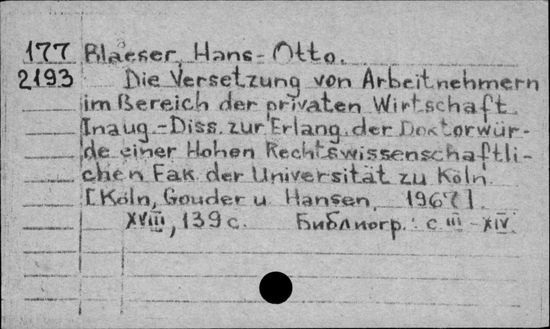 177 Blaeser, Hans-Otto.
2193 Die Versetzung von Arbeitnehmern
im Bereich der privaten Wirtschaft.
Inaug.-Diss. zur Erlang. der Doktorwür-
de einer Hohen Rechtswissenschaftli-
chen Fak. der Universität zu Köln.
[Köln, Gouder u. Hansen, 1967].
XVIII, 139 с. Библиогр.: с III-XIV.